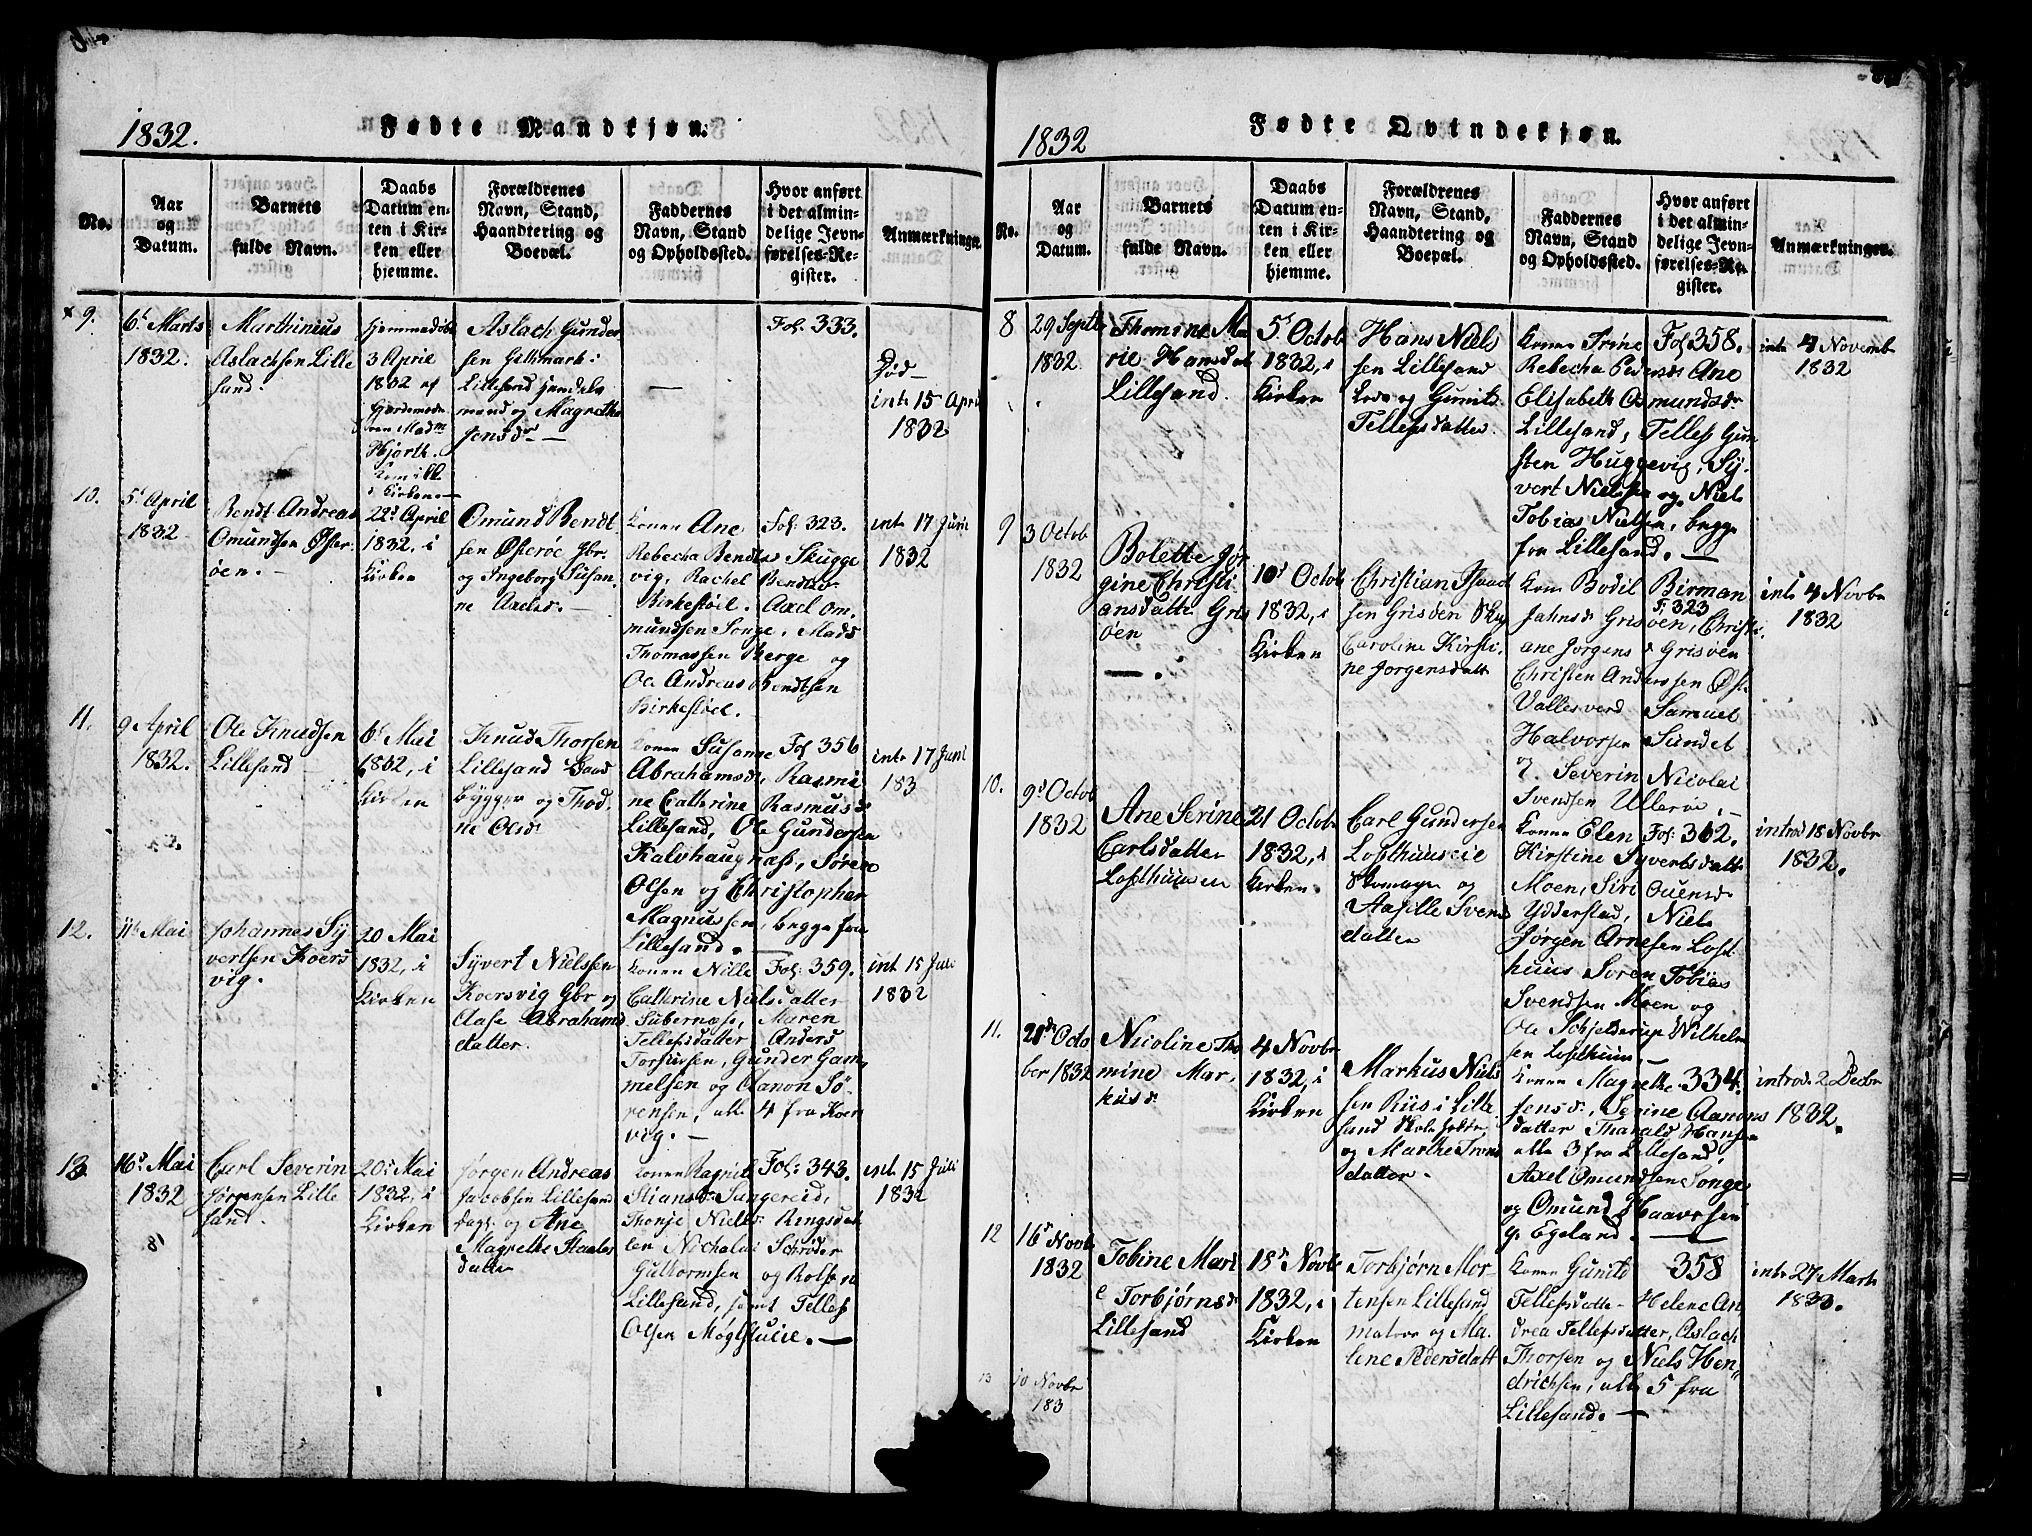 1832.
Fødte Mandkjøn.
No.
Aar
og
Datum.
Barnets
fulde Navn.
Daabs
Datum en-
ten i Kir-
ken eller
hjemme.
Forældrenes
Navn, Stand,
Haandtering og
Boepæl.
Faddernes
Navn, Stand
og Opholdssted.
Hvor anført
i det almin-
delige Jevn-
førelses-Re-
gister.
Anmærkninger.
9.
6t Marts
1832.
Marthinius
Aslachsen Lille
sand.
Hjemmedøbt
3 April
1832 af
Gjordemode
ren Madm
Hjorth.
i Kirken.
Aslach Gunder
sen
Lillesand
mand og Magrethe
Jensdr
—
Fol. 333.
Død
intr 15 April
1832
10.
5t April
1832
Bendt Andreas
Omundsen Øster
øen.
22d April
1832, i
Kirken
Omund Bendt
sen Østerøe Gbr.
og Ingeborg Susan
ne Axelsd.
Konen Ane
Rebecha Bendtsd Skugge
vig, Rachel Bendtsdr
Birkestøel. Axel Om
mundsen Songe. Mads
Thomassen Berge og
Ole Andreas Bendtsen
Birkestøel.
Fol. 323.
intr 17 Juni
1832
11.
9 April
1832.
Ole Knudsen
Lillesand
6t Mai
1832, i
Kirken
Knud Thorsen
Lillesand Baad
bygger og Thod
ne Olsdr
Konen Susanne
Abrahamsdr, Rasmi
ne Cathrine Rasmusd
Lillesand, Ole Gundersen
Kalvhaugnæss, Søren
Olsen og Christopher
Magnussen, begge fra
Lillesand.
Fol 356
intr 17 Juni
183
12.
11t Mai
Johannes Sy
vertsen Koers
vig.
20 Mai
1832, i
Kirken
Syvert Nielsen
Koersvig Gbr og
Aase Abrahams
datter.
Konen Nille
Cathrine Nielsdatter
Tellefsdatter Anders
Gunder Gam
melsen og Aanon Sø
rensen, alle 4 fra Koers
vig.
Fol. 359.
int 15 Juli
1832
13
16d Mai
1832
Carl Severin
Jørgensen Lille
sand.
20d Mai
1832, i
Kirken
Jørgen Andreas
Jacobsen Lillesand
og Ane
Magrethe
datter
Konen Ragnil
Stiansdr Sangereid,
Thonje Nielsd.
Nicholai Schrøder
Guthormsen
Lillesand, samt Tellef
Olsen
Fol. 343.
int 15 Juli
1832
1832
Fødte Qvindekjøn.
No.
Aar
og
Datum.
Barnets
fulde Navn.
Daabs
Datum en-
ten i Kir-
ken eller
hjemme.
Forældrenes
Navn, Stand,
Haandtering og
Boepæl.
Faddernes
Navn, Stand
og Opholdssted.
Hvor anført
i det almin-
delige Jevn-
førelses-Re-
gister.
Anmærkninger.
8
29 Septb
1832
Thomine Ma
rie Hansdat
Lillesand.
5t Octob
1832, i
Kirken
Hans Niel
sen Lillesand
Lods og Gunild
Tellefsdatter.
Konen Trine
Rebecha Pedersdr Ane
Elisabeth Osmundsdr
Lillesand, Tellef Gun
sten Huggevig, Sy
vert Nielsen og Niels
Tobias Nielsen, begge
fra Lillesand.
Fol 358.
intr 4 Novemb
1832
9
3 Octob
1832
Bolette Jør
gine Christi
ansdatter Gris
øen
10d Octob
1832, i
Kirken
Christian Isaac
sen Grisøen
Caroline Kirsti
ne Jørgensdatt
Kone Bodil Birman
Jahnsd Grisøen, Christi
ane Jørgensd Grisøen
Christen Anderssen Øst
Vallesverd Samuel
Halvorsen Sundet
og Severin Nicolai
Svendsen Ulleröe.
F. 323
intr 4 Novbr
1832
10.
9d Octob
1832
Ane Serine
Carlsdatter
Lofthuusen
21 Octob
1832, i
Kirken
Carl Gundersen
Lofthuuseie
Skomager og
Aasille Svens
datter
Konen Elen
Kirstine Syvertsdatt
Moen, Siri Ouensd
Ydderstad, Niels
Jørgen Arnesen Loft
huus Søren Tobias
Svendsen Moen og
Ole Schjelderup Wilhelm
sen Lofthuus.
Fol. 362.
introd 18 Novbr
1832.
11.
21de Octo
ber 1832
Nicoline Tho
mine Mar
kusd
4 Novbr
1832, i
Kirken
Markus Niel
sen Riis i Lille
sand
og Marthe
datter.
Konen Magrethe
Jensdr, Serine Aanons
datter Tharald Hansen
alle 3 fra Lillesand,
Axel Omundsen Songe
og Omund Haavorsen
Egeland.
334.
introd. 2 Decbr
1832.
12
16d Novb
1832
Tobine Mari
e Torbjørnsd
Lillesand
18d Novb
1832, i
Kirken
Torbjørn Mor
tensen Lillesand
matros og Ma
lene Pedersdatt
Konen Gunild
Tellefsdatter Helene An
drea Tellefsdatter, Aslach
Thorsen og Niels Hen
drichsen, alle 5 fra
Lillesand.
358
intr 27 Marts
1833.
13
10 Novbr
183